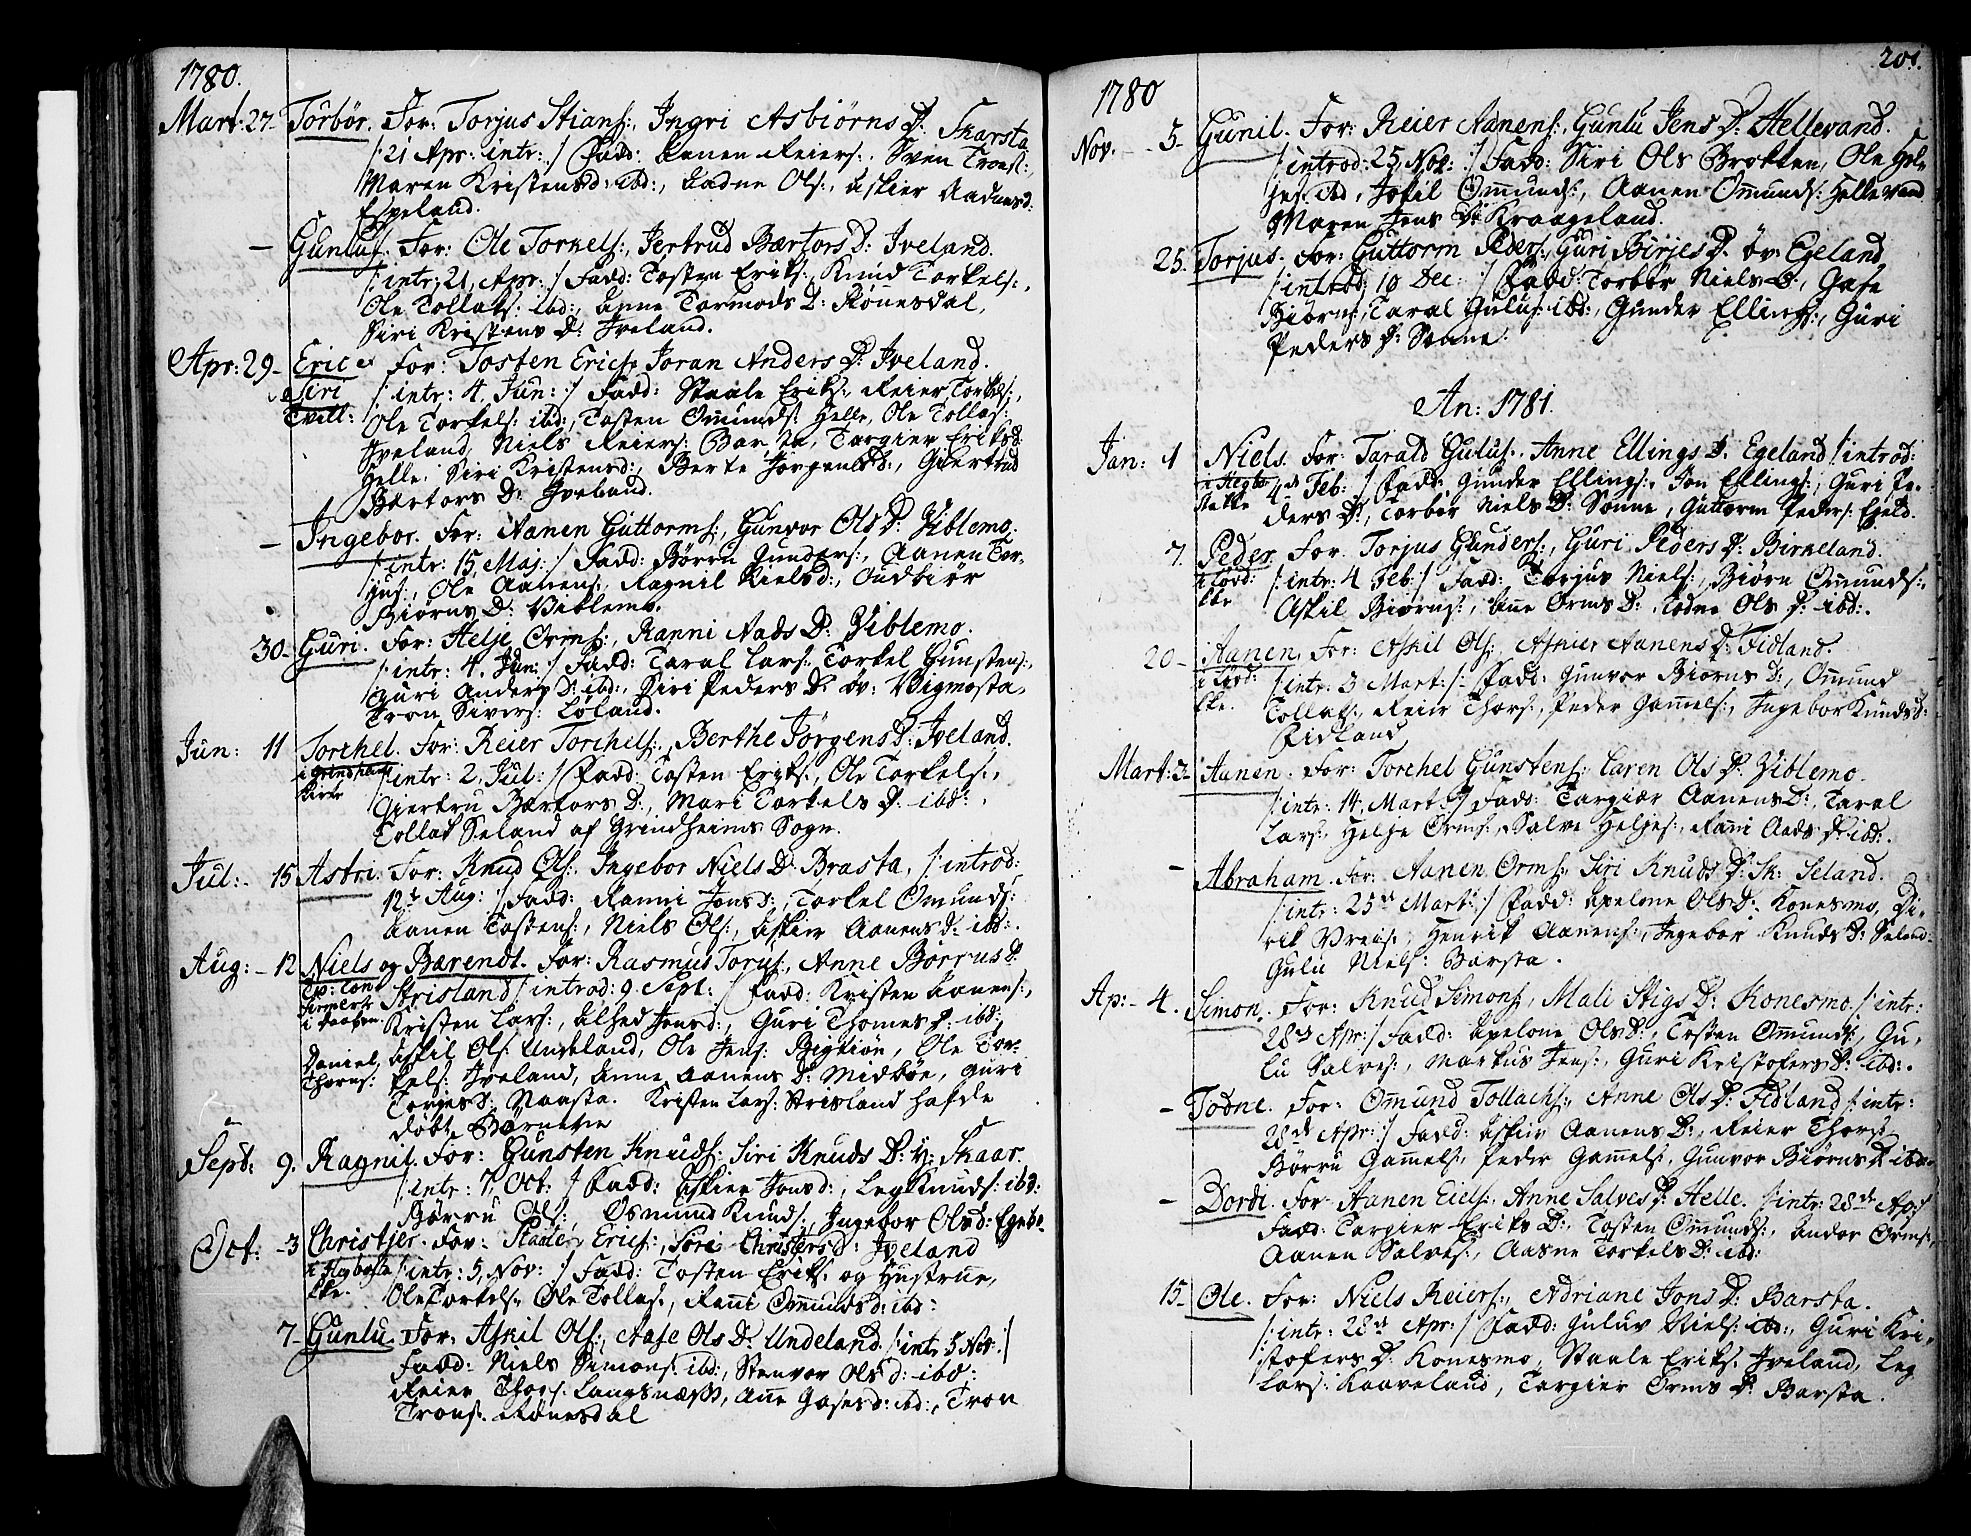 1780.
Mart: 27- Torbör. For: Torjus Stians:, Ingri Asbiörns D: Skarsta
/: 21 Apr: intr: :/ Fadd: Aanen Reiers:, Sven Trons:,
Maren Kristensd: ibd:, Aadne Ols:, Askier Aadnesd:
Espeland.
— Gunlus. For: Ole Torkels:, Jertrud Bærtors D: Iveland.
/: intr: 21, Apr: :/ Fadd: Tosten Eriks:, Knud Torkels:,
Ole Tollaks: ibd:, Anne Tormods D: Rönnesdal,
Siri Kristens D: Iveland.
Apr: 29- Eric For: Tosten Erics, Joran Anders D: Iveland.
Siri /: intr: 4. Jun: :/ Fadd: Staale Eriks:, Reier Torkels:,
Tvill: Ole Torkels: ibd:, Tosten Omunds: Helle, Ole Tollas:,
Iveland, Niels Reiers: Barsta, Targier Eriksd:
Helle, Siri Kristensd:, Berte Jörgensd:, Giertrud
Bærtors D: Iveland.
— Ingebor. For: Aanen Guttorms:, Gunvor Ols D: Viblemo.
/: intr: 15, Maj: :/ Fadd: Börru Gunders:, Aanen Tor-
jus:, Ole Aanens:, Ragnil Nielsd:, Oudbiör
Biörns D: Viblemo.
30- Guri. For: Helje Orms:, Ranni Aads D: Viblemo.
/: intr: 4. Jun: :/ Fadd: Taral Lars:, Torkel Gunstens:,
Guri Anders D: ibd:, Siri Peders D: öv: Vigmosta,
Tron Sivers: Loland.
Jun: 11 Torchel. For: Reier Torchels:, Berthe Jörgens D: Iveland.
i Grindheims /: intr: 2, Jul: :/ Fadd: Tosten Eriks:, Ole Torkels:,
Kirke Giertru Bærtors D:, Mari Torkels D: ibd:,
Tollak Seland af Grindheims Sogn.
Jul: - 15 Astri. For: Knud Ols:, Ingebor Niels D: Brasta, /: introd:
12t Aug: :/ Fadd: Ranni Jons D:, Torkel Omunds:
Aanen Tostens:, Niels Ols:, Askier Aanens D: ibd:.
Aug: - 12 Niels og Bærendt. For: Rasmus Torjus:, Anne Börrus D:
Strisland /: introd: 9 Sept: :/ Fadd: Kristen Aanens:,
Kristen Lars:, Alhed Jensd:, Guri Thomes D: ibd:,
Daniel Askil Ols: Undeland, Ole Jens: Bigtiön, Ole Tor-
Thorns: kels: Iveland, Anne Aanens D: Midböe, Guri
Torjus D: Naasta. Kristen Lars: Strisland hafde
döbt Börnene
Sept: 9. Ragnil. For: Gunsten Knuds: Siri Knuds D: Y: Skaar.
/: intr: 7, Oct: :/ Fadd: Askier Jons d:, Leg Knuds: ibd:
Börru Ols:, Osmund Knuds:, Ingebor Olsd: Egebo-
Oct: -3 Christjer. For: Staale Erics:, Siri Christers D: Iveland
i Hegbosta /: intr: 5, Nov: :/ Fadd: Tosten Eriks: og Hustrue,
kke. Ole Torkels:, Ole Tollas:, Ranni Omunds d: ibd:
7- Gunlu. For: Askil Ols:, Aase Ols D: Undeland. /: intr 5 Nov: :/
Fadd: Niels Simons: ibd:, Stenvor Ols d: ibd:
Reier Thors: Langenæss, Anne Gasesd: ibd:, Tron
Trons: Rönesdal
201.
1780
Nov. - 5- Gunil. For: Reier Aanens:, Gunlu Jens D: Hellevand.
/: introd: 25, Nov: :/ Fadd: Siri Ols Brotten, Ole Hel-
jes: ibd, Jokil Omunds:, Aanen Omunds: Hellevand
Maren Jens D: Kraageland.
25. Torjus. For: Guttorm Peders:, Guri Birjes D: öv: Egeland
/: introd: 10 Dec: :/ Fadd: Torbör Niels D:, Gase
Biörns:, Taral Gulus: ibd:, Gunder Ellings:, Guri
Peders D: Sonne.
An: 1781.
Jan: 1 Niels. For: Tarald Gulus:, Anne Ellings D: Egeland /: introd:
i Hegbo 4de Feb: :/ Fadd: Gunder Ellings:, Jon Ellings:, Guri Pe-
stakke ders D:, Torbör Niels D: Sonne, Guttorm Peders: Egeld.
7. Peder. For: Torjus Gunders:, Guri Peders D: Birkeland.
/: intr: 4 Feb: :/ Fadd: Torjus Niels:, Biörn Omunds:,
kke Askil Biörns:, Anne Orms D:, Todne Ols D: ibd:.
20- Aanen. For: Askil Ols:, Askier Aanens D: Fidland.
/: intr: 3 Mart: :/ Fadd: Gunvor Biörns D:, Omund
kke. Tollaks:, Reier Thors:, Peder Gamels:, Ingebor Knuds D:
Fidland
Mart: 3- Aanen. For: Torchel Gunstens:, Caren Ols D: Viblemo.
/: intr: 14, Mart: :/ Fadd: Targiær Aanens D:, Taral
Lars:, Helje Orms:, Salve Heljes:, Ranni Aads D: ibd:.
— Abraham. For: Aanen Orms:, Siri Knuds D: Sk: Seland.
/: intr: 25de Mart: :/ Fadd: Apelone Ols D: Konesmo, Di-
rik Vreis:, Henrik Aanens:, Ingebor Knuds D: Seland:
Gulu Niels: Barsta.
Ap: - 4. Simon. For: Knud Simons:, Mali Stigs D: Konesmo. /: intr:
28de Apr: :/ Fadd: Apelone Ols D:, Tosten Omunds:, Gu-
lu Salves:, Markus Jens:, Guri Kristofers D: ibd:.
- Todne. For: Omund Tollachs:, Anne Ols D: Fidland /: intr:
28de Apr: :/ Fadd: Askier Aanens D:, Reier Thors:,
Börru Gamels:, Peder Gamels:, Gunvor Biörns D: ibd:
- Dordi. For: Aanen Eiels:, Anne Salves D: Helle. /: intr: 28de Ap: :/
Fadd: Targier Eriks D:, Tosten Omunds:, Andor Orms:,
Aanen Salves:, Aasne Torkels D: ibd:
15- Ole. For: Niels Reiers:, Adriane Jons D: Barsta.
/: intr: 28de Apr: :/ Fadd: Guluv Niels: ibd:, Guri Kri-
stofers D: Konesmo, Staale Eriks: Iveland, Leg
Lars: Kaaveland, Targier Orms D: Barsta.